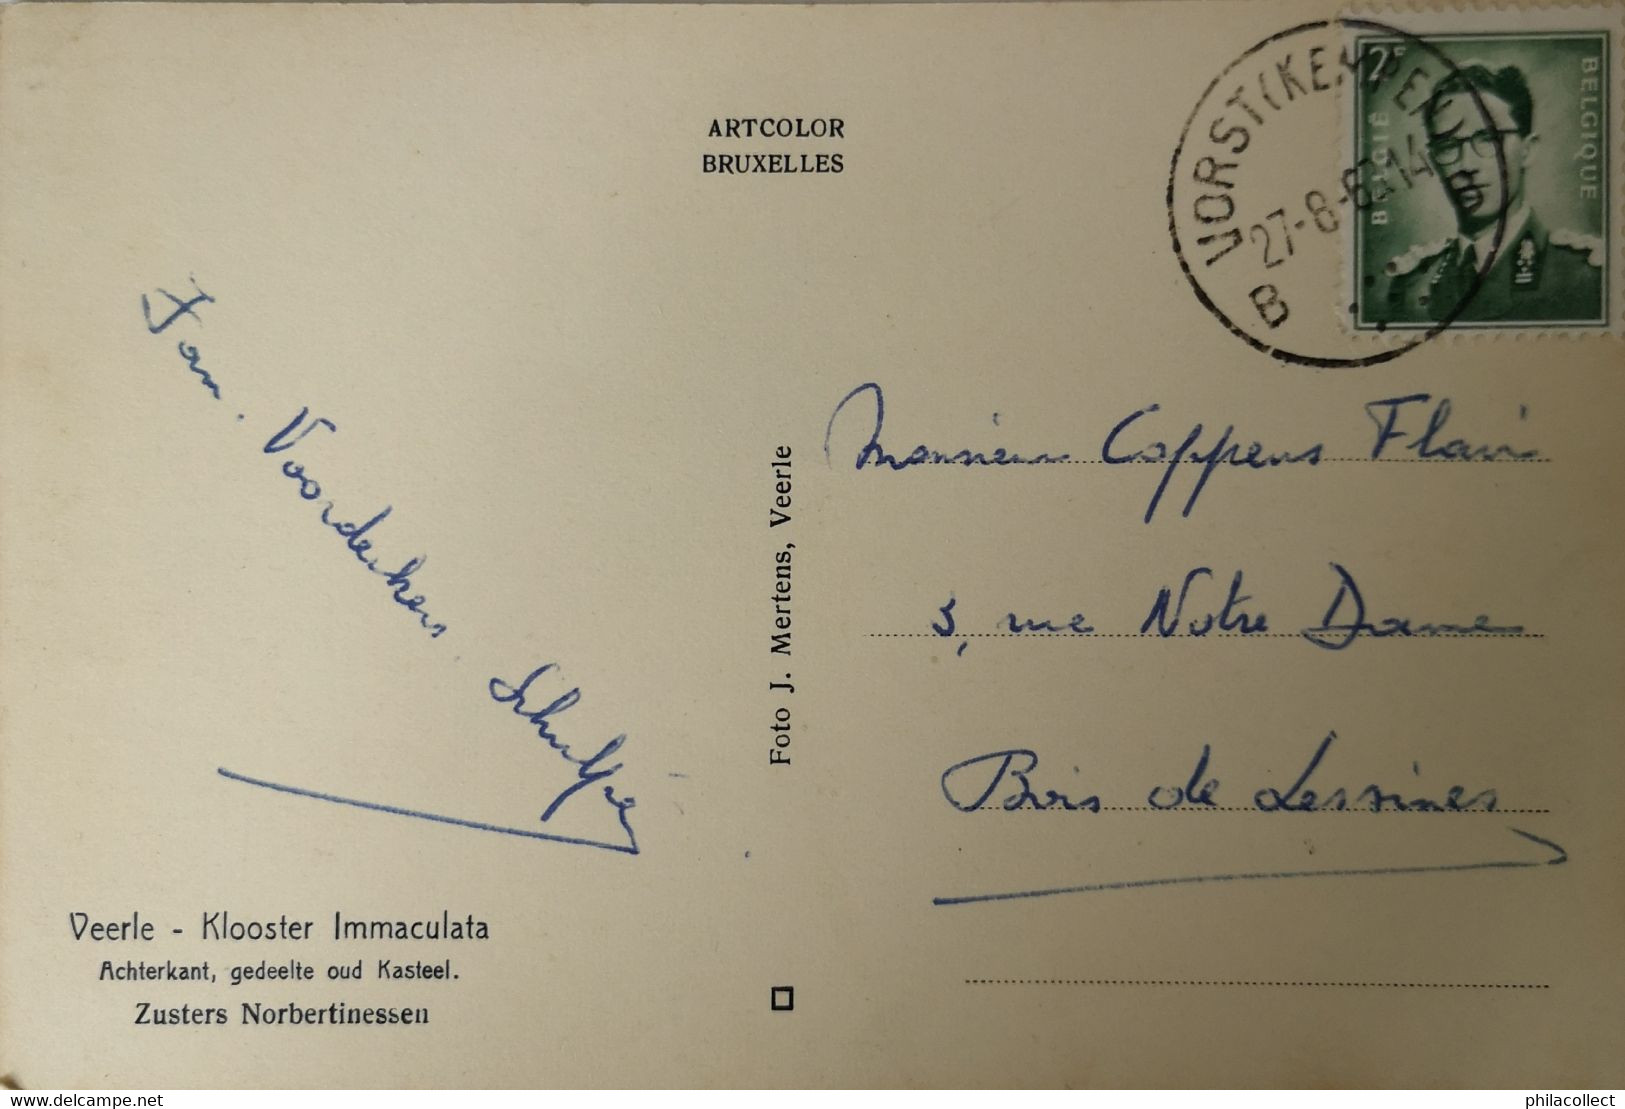 ARTCOLOR
BRUXELLES
VORST (KEMPEN)
27-8-6 14
B
2F
BELGIË
BELGIQUE
Jan. Voordeckers. Schulpé
Foto J. Mertens, Veerle
Monsieur Coppens Flavi
3, rue Notre Dame
Bois de Lessines
Veerle - Klooster Immaculata
Achterkant, gedeelte oud Kasteel.
Zusters Norbertinessen
delcampe.net
philacollect